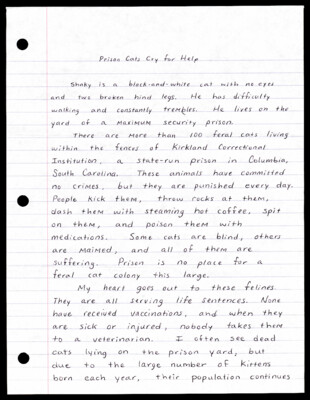 Prison Cats Cry for Help
Shaky is a black-and-white cat with no eyes
and two broken hind legs. He has difficulty
walking and constantly trembles. He lives on the
yard of a maximum security prison.
There are more than 100 feral cats living
within the fences of Kirkland Correctional
Institution, a state-run prison in Columbia,
South Carolina. These animals have committed
no crimes, but they are punished every day.
People kick them, throw rocks at them,
dash them with steaming hot coffee, spit
on them, and poison them with
medications. Some cats are blind, others
are maimed, and all of them are
suffering. Prison is no place for a
feral cat colony this large.
My heart goes out to these felines.
They are all serving life sentences. None
have received vaccinations, and when they
are sick or injured, nobody takes them
to a veterinarian. I often see dead
cats lying on the prison yard, but
due to the large number of kittens
born each year, their population continues